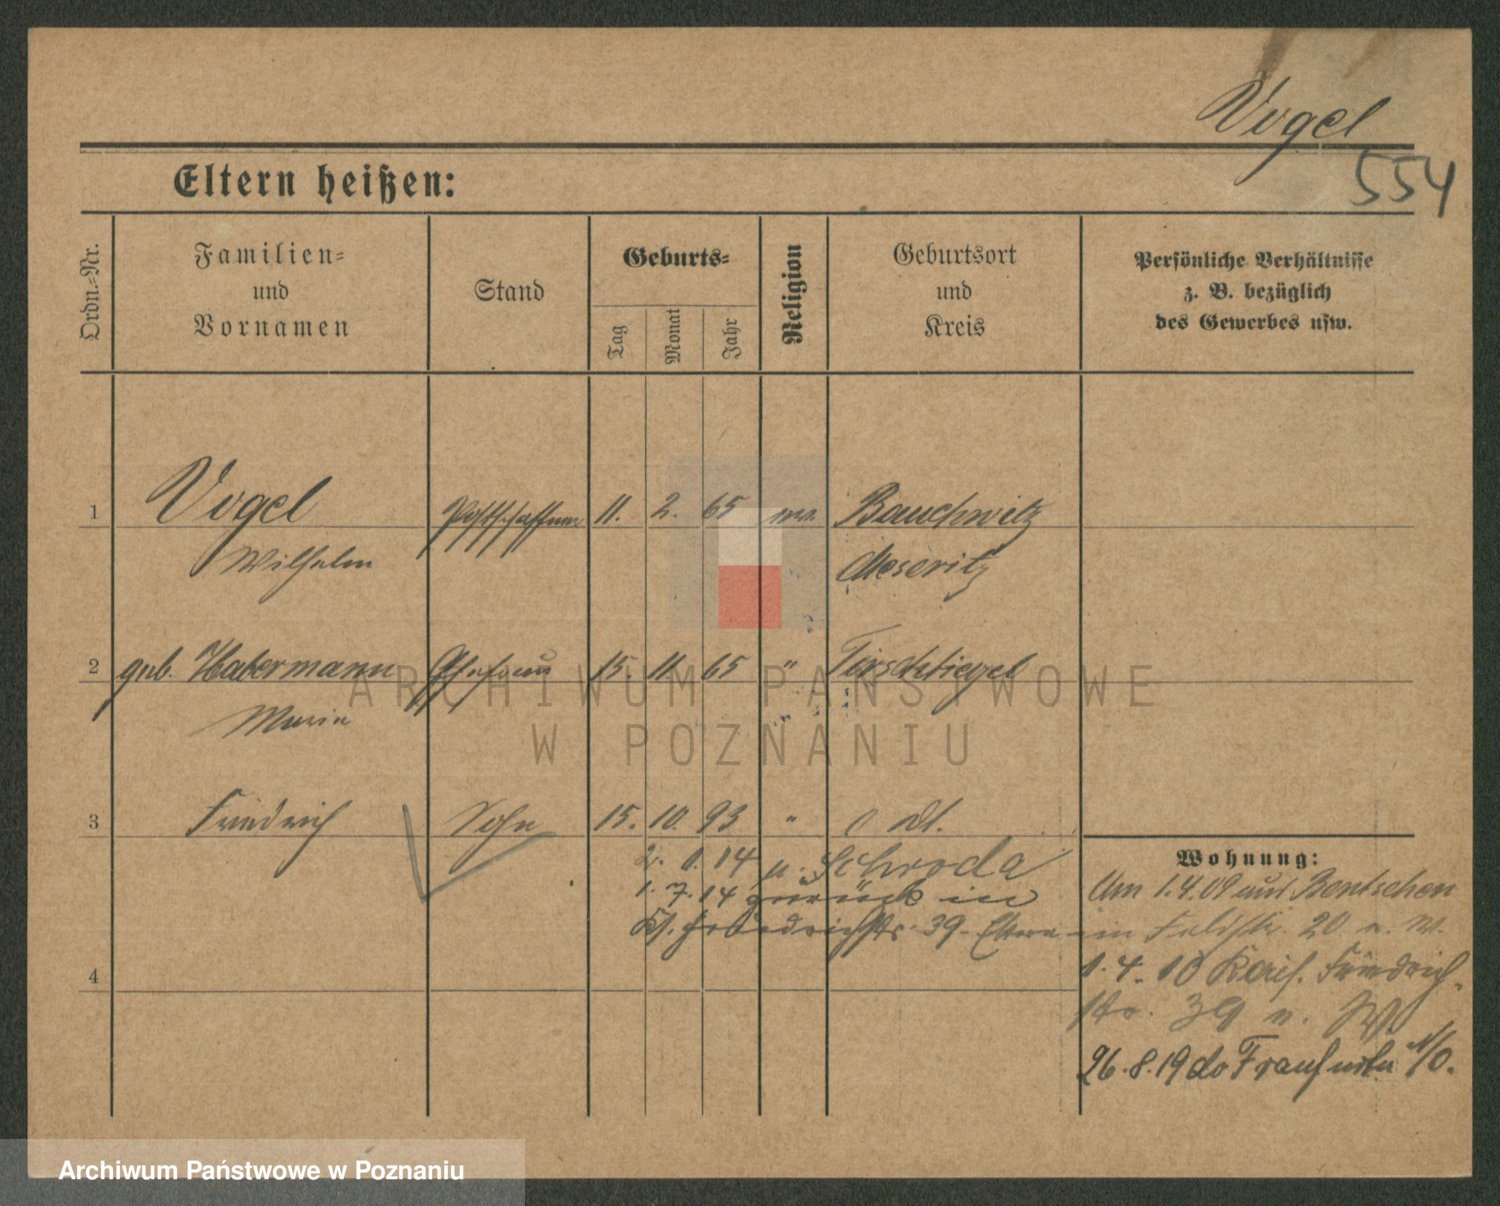 Vogel
554
Eltern heißen:
Ordn.-Nr.
Familien- und Vornamen
Stand
Geburts-
Tag
Monat
Jahr
Religion
Geburtsort und Kreis
Persönliche Verhältnisse
z. B. bezüglich
des Gewerbes usw.
1 Vogel Postschaffner 11. 2. 65 Bauchwitz
Wilhelm Meseritz
2 geb. Habermann Ehefrau 15. 11. 65 " Tirschtiegel
Maria
ARCHIWUM PAŃSTWOWE
W POZNANIU
3 Friedrich Sohn 15. 10. 93 "
14 n. Schroda
1. 7. 14 zurück in
Friedrichstr. 39. Eltern
4
Wohnung:
Am 1.4.09 aus Bentschen
in Feldstr. 20 n. W.
1. 4. 10 Kais. Friedrich-
str. 39 n. W.
26.8.19 do Frankfurt a/O.
Archiwum Państwowe w Poznaniu